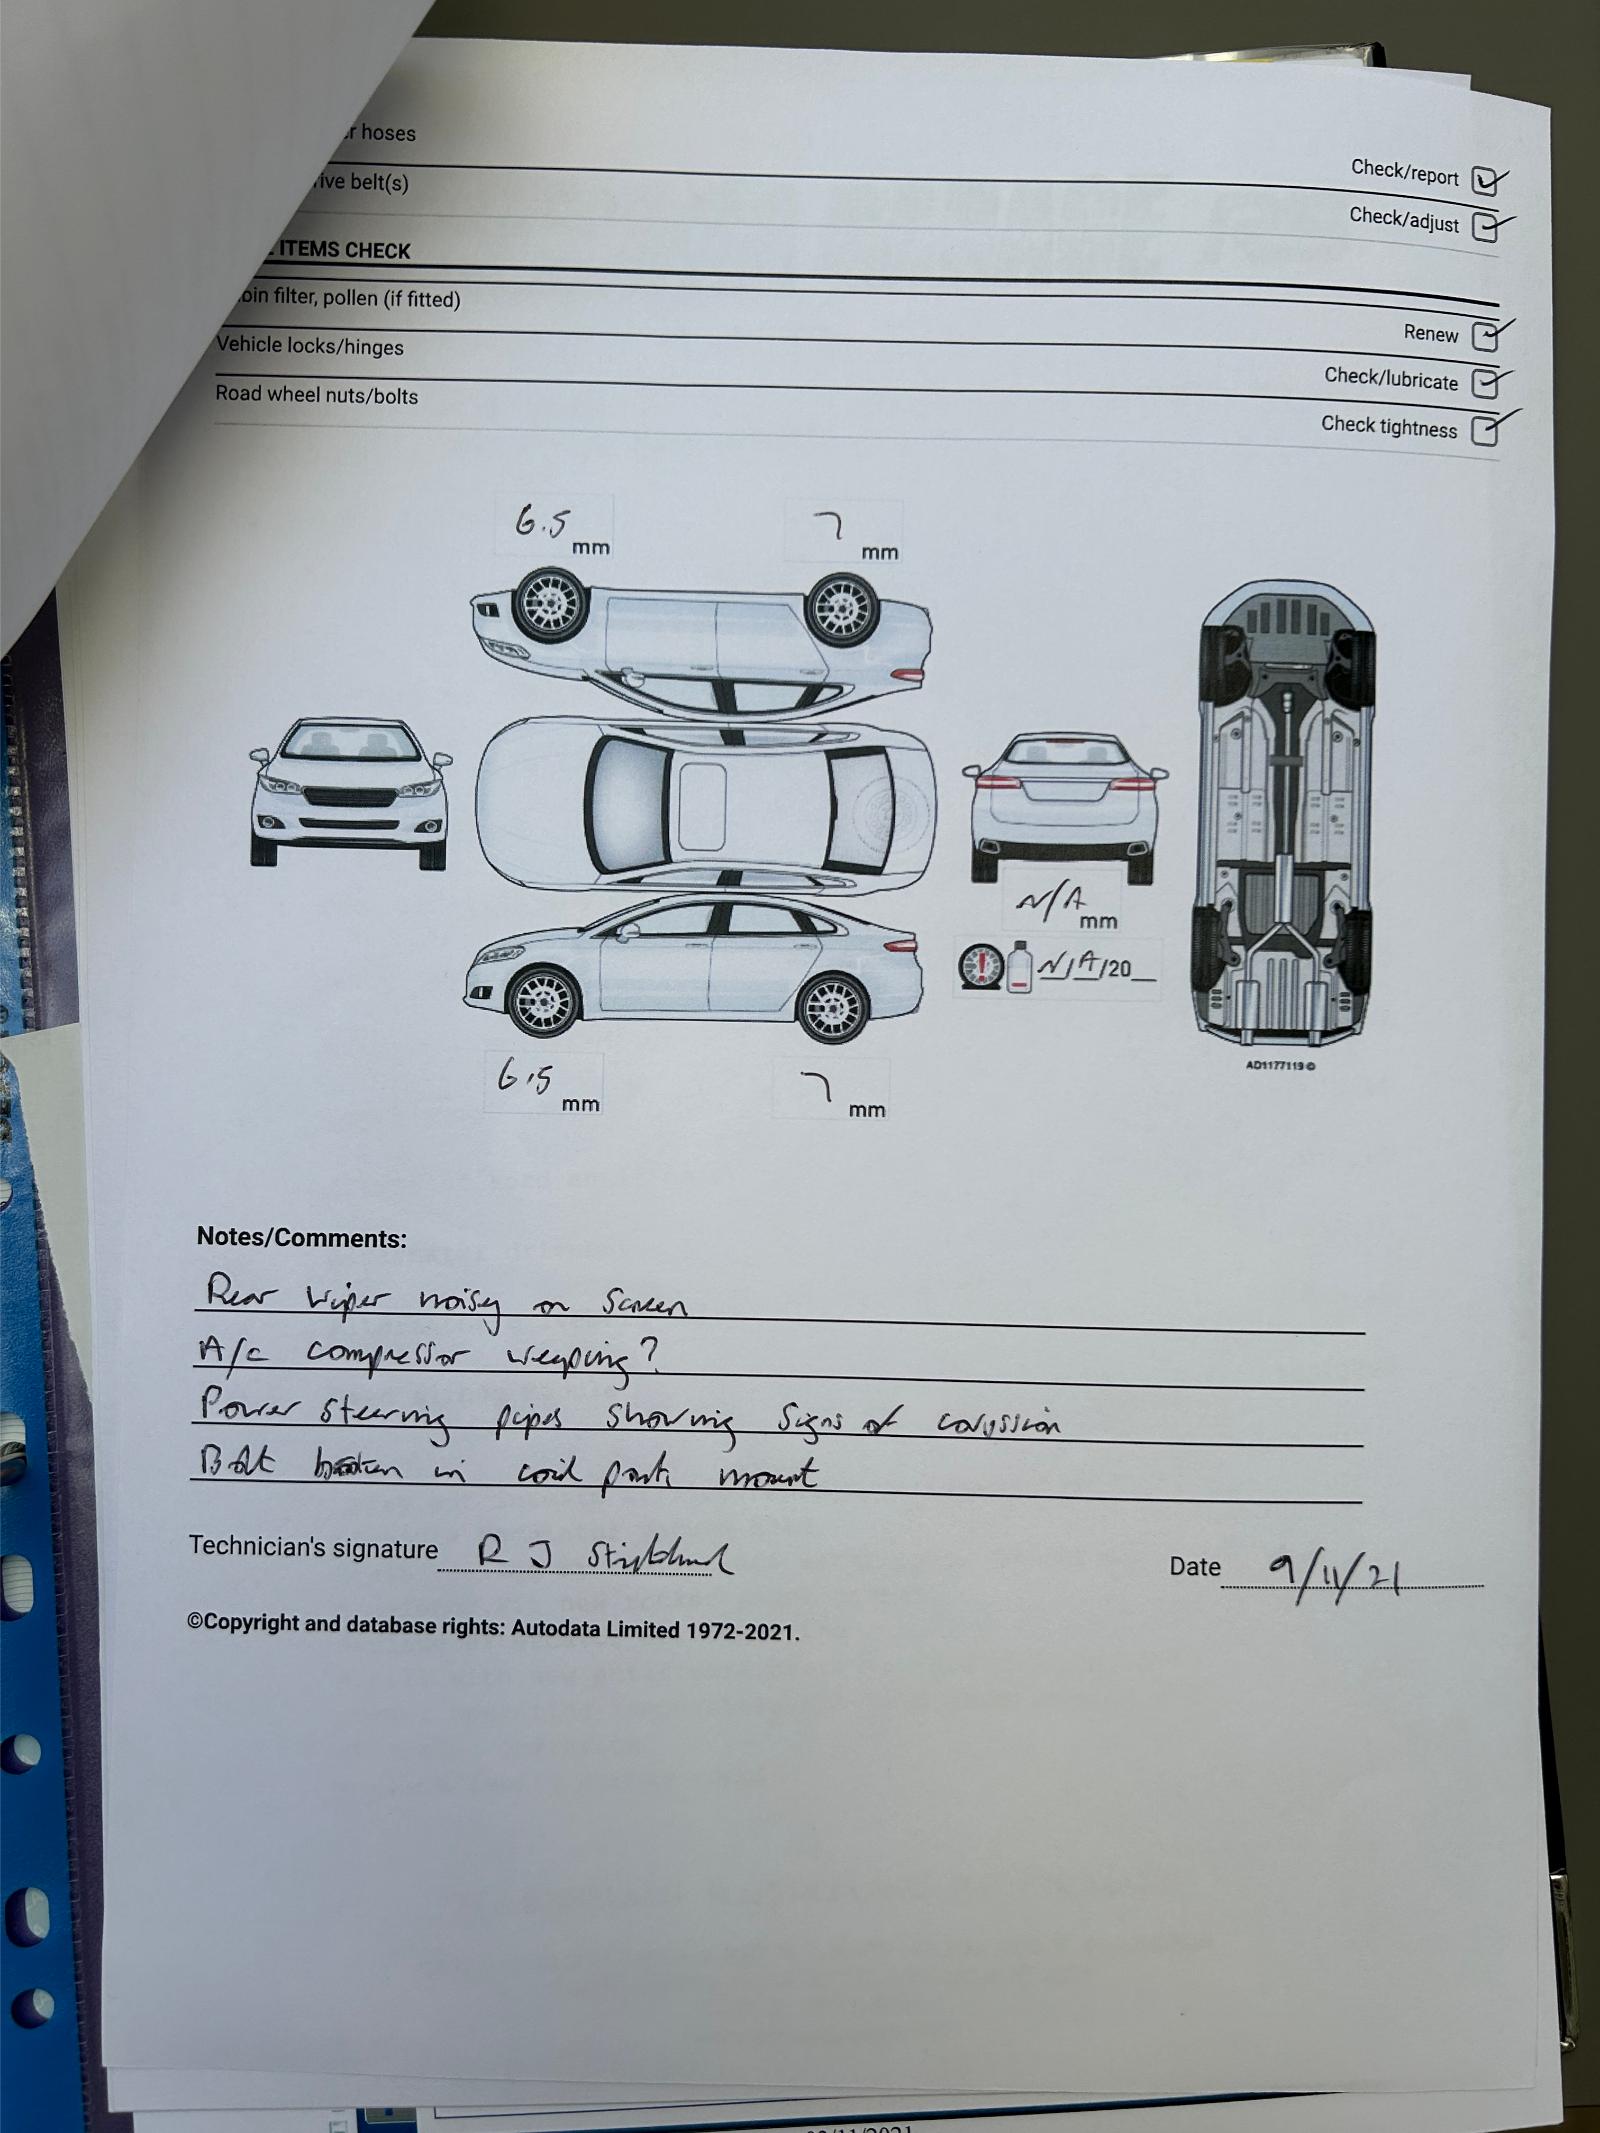 r hoses
Check/report
ive belt(s)
Check/adjust
ITEMS CHECK
bin filter, pollen (if fitted)
Renew
Vehicle locks/hinges
Check/lubricate
Road wheel nuts/bolts
Check tightness
6.5 mm
7 mm
N/A mm
N/A/20__
AD1177119©
6.5 mm
7 mm
Notes/Comments:
Rear wiper noisy on screen
A/c compressor weeping?
Power steering pipes showing signs of corossion
Bolt broken in coil pack mount
Technician's signature R J
Date 9/11/21
©Copyright and database rights: Autodata Limited 1972-2021.